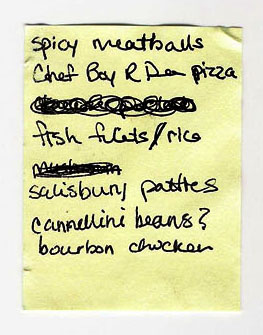 spicy meatballs
Chef Boy R Dee pizza
fish filets/rice
salisbury patties
cannellini beans?
bourbon chicken